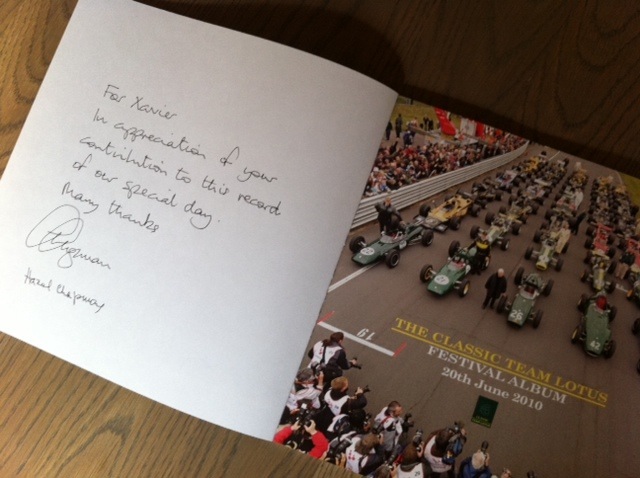 For Xavier
In appreciation of your
contribution to this record
of our special day.
Many thanks
Chapman
Hazel Chapman
THE CLASSIC TEAM LOTUS
FESTIVAL ALBUM
20th June 2010
19